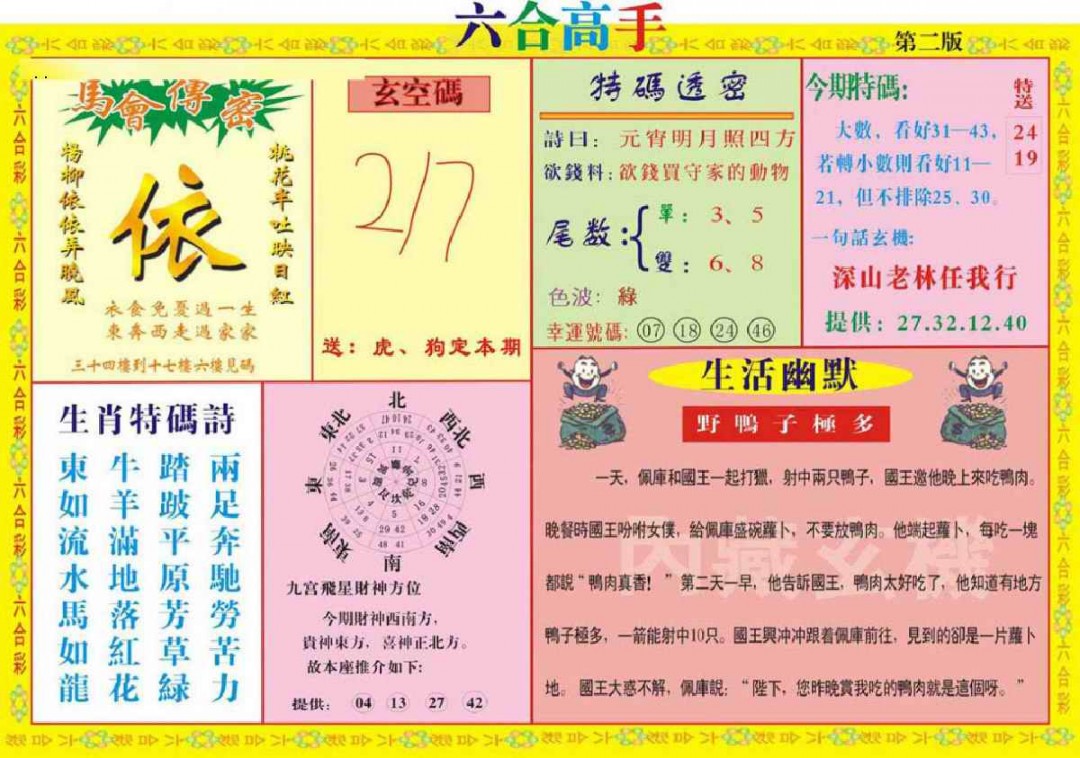 六合高手
第二版
馬會傳密
楊柳依依弄曉風
依
桃花半吐映日紅
衣食免憂過一生
東奔西走過家家
三十四樓到十七樓六樓見碼
玄空碼
2/7
送：虎、狗定本期
特碼透密
詩曰：元宵明月照四方
欲錢料：欲錢買守家的動物
尾数：
單：3、5
雙：6、8
色波：綠
幸運號碼：07 18 24 46
今期特碼:
特送
24
19
大數，看好31—43，
若轉小數則看好11—
21，但不排除25、30。
一句話玄機:
深山老林任我行
提供：27.32.12.40
生肖特碼詩
東牛踏兩
如羊跛足
流滿平奔
水地原馳
馬落芳勞
如紅草苦
龍花緑力
北
東北
西北
東
西
東南
西南
南
九宮飛星財神方位
今期財神西南方，
貴神東方，喜神正北方。
故本座推介如下:
提供: 04 13 27 42
生活幽默
野鴨子極多
一天，佩庫和國王一起打獵，射中兩只鴨子，國王邀他晚上來吃鴨肉。
晚餐時國王吩咐女僕，給佩庫盛碗蘿卜，不要放鴨肉。他端起蘿卜，每吃一塊
都説“鴨肉真香！”第二天一早，他告訴國王，鴨肉太好吃了，他知道有地方
鴨子極多，一箭能射中10只。國王興冲冲跟着佩庫前往，見到的卻是一片蘿卜
地。國王大惑不解，佩庫説：“陛下，您昨晚賞我吃的鴨肉就是這個呀。”
内藏玄機